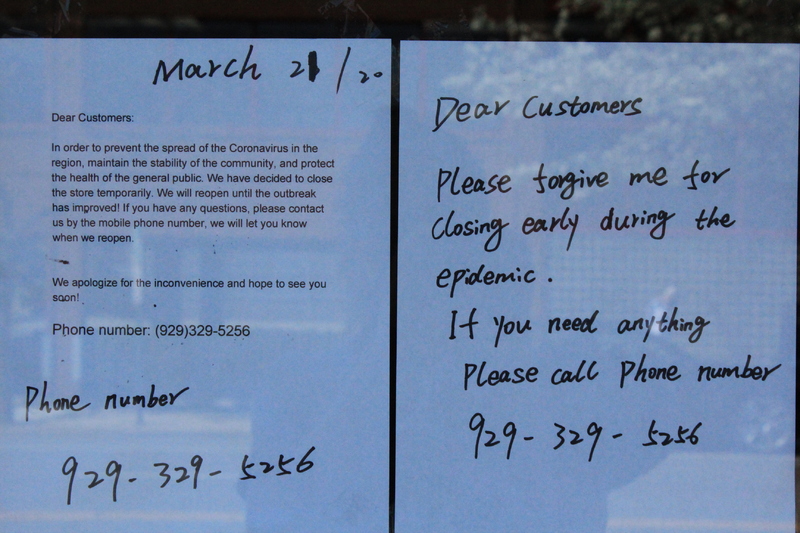 March 21/20
Dear Customers:
In order to prevent the spread of the Coronavirus in the
region, maintain the stability of the community, and protect
the health of the general public. We have decided to close
the store temporarily. We will reopen until the outbreak
has improved! If you have any questions, please contact
us by the mobile phone number, we will let you know
when we reopen.
We apologize for the inconvenience and hope to see you
soon!
Phone number: (929)329-5256
Phone number
929-329-5256
Dear Customers
Please forgive me for
closing early during the
epidemic.
If you need anything
Please call Phone number
929-329-5256